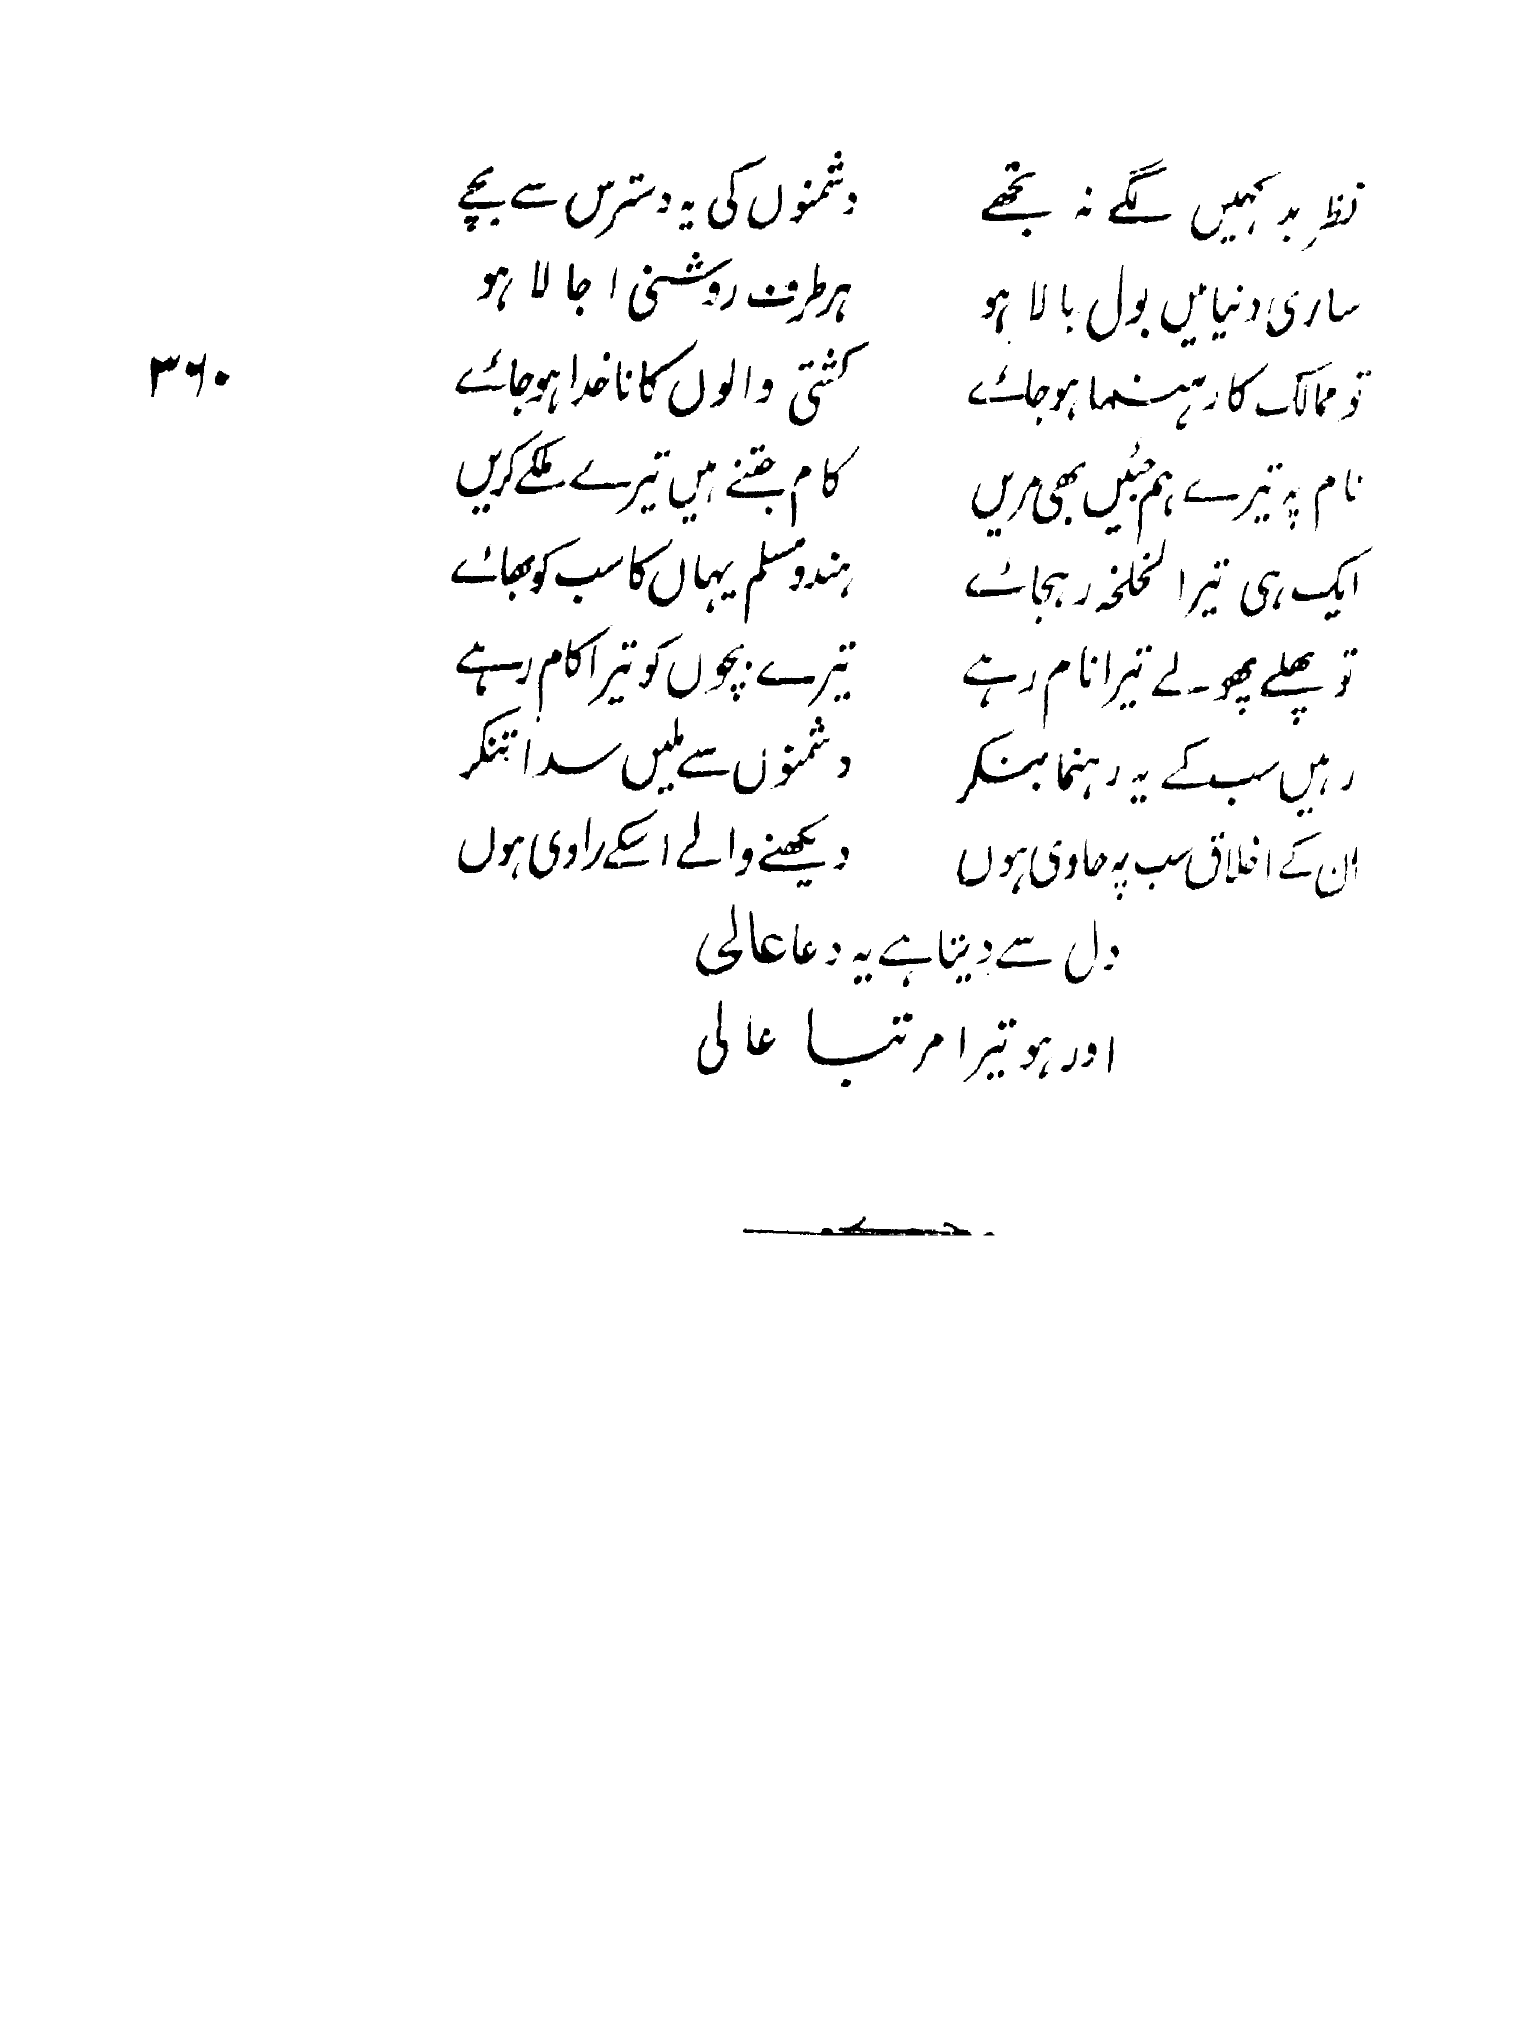 نظرِ بد کہیں لگے نہ تجھے دشمنوں کی یہ دسترس سے بچے
ساری دنیا میں بول بالا ہو ہر طرف روشنی اجالا ہو
تو ممالک کا رہنما ہوجائے کشتی والوں کا ناخدا ہوجائے ۳۶۰
نام پہ تیرے ہم جئیں بھی مریں کام جتنے ہیں تیرے ملکے کریں
ایک ہی تیرا لخلخہ رہجائے ہندو مسلم یہاں کا سب کو بھائے
تو پھلے پھولے تیرا نام رہے تیرے بچوں کو تیرا کام رہے
رہیں سب کے یہ رہنما بنکر دشمنوں سے ملیں سدا تنکر
ان کے اخلاق سب پہ حاوی ہوں دیکھنے والے اسکے راوی ہوں
دل سے دیتا ہے یہ دعا عالی
اور ہو تیرا مرتبا عالی